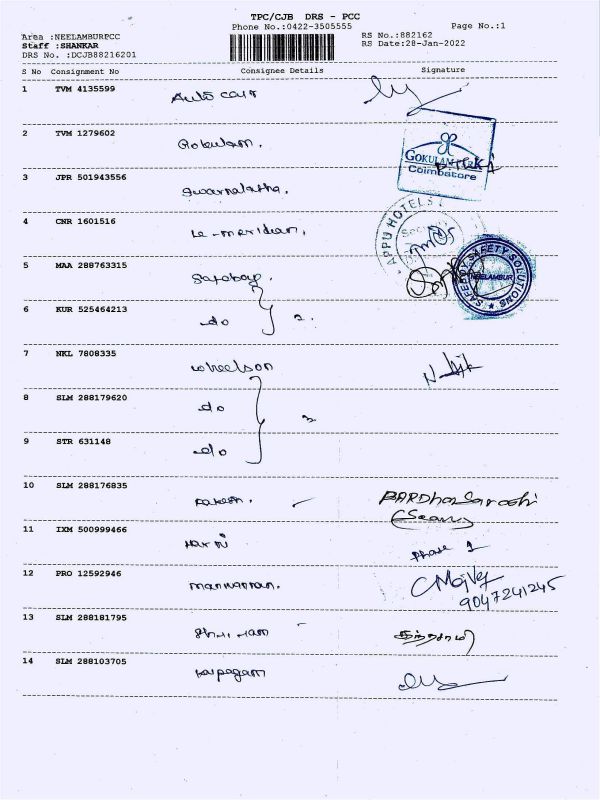 TPC/CJB DRS - PCC
Phone No.:0422-3505555 Page No.:1
Area :NEELAMBURPCC RS No.:882162
Staff :SHANKAR RS Date:28-Jan-2022
DRS No. :DCJB88216201
S No Consignment No Consignee Details Signature
1 TVM 4135599
2 TVM 1279602 Gokulam.
GOKULAM PARK
Coimbatore
3 JPR 501943556 Swarnalatha.
4 CNR 1601516 Le-meridian.
APPU HOTELS
5 MAA 288763315
SAFETY SOLUTIONS
NEELAMBUR
6 KUR 525464213 do 2.
7 NKL 7808335 wheelson
8 SLM 288179620 do 3
9 STR 631148 do
10 SLM 288176835 Rakesh.
11 IXM 500999466 Hari Phase 1
12 PRO 12592946
9047241245
13 SLM 288181795
14 SLM 288103705 Karpagam